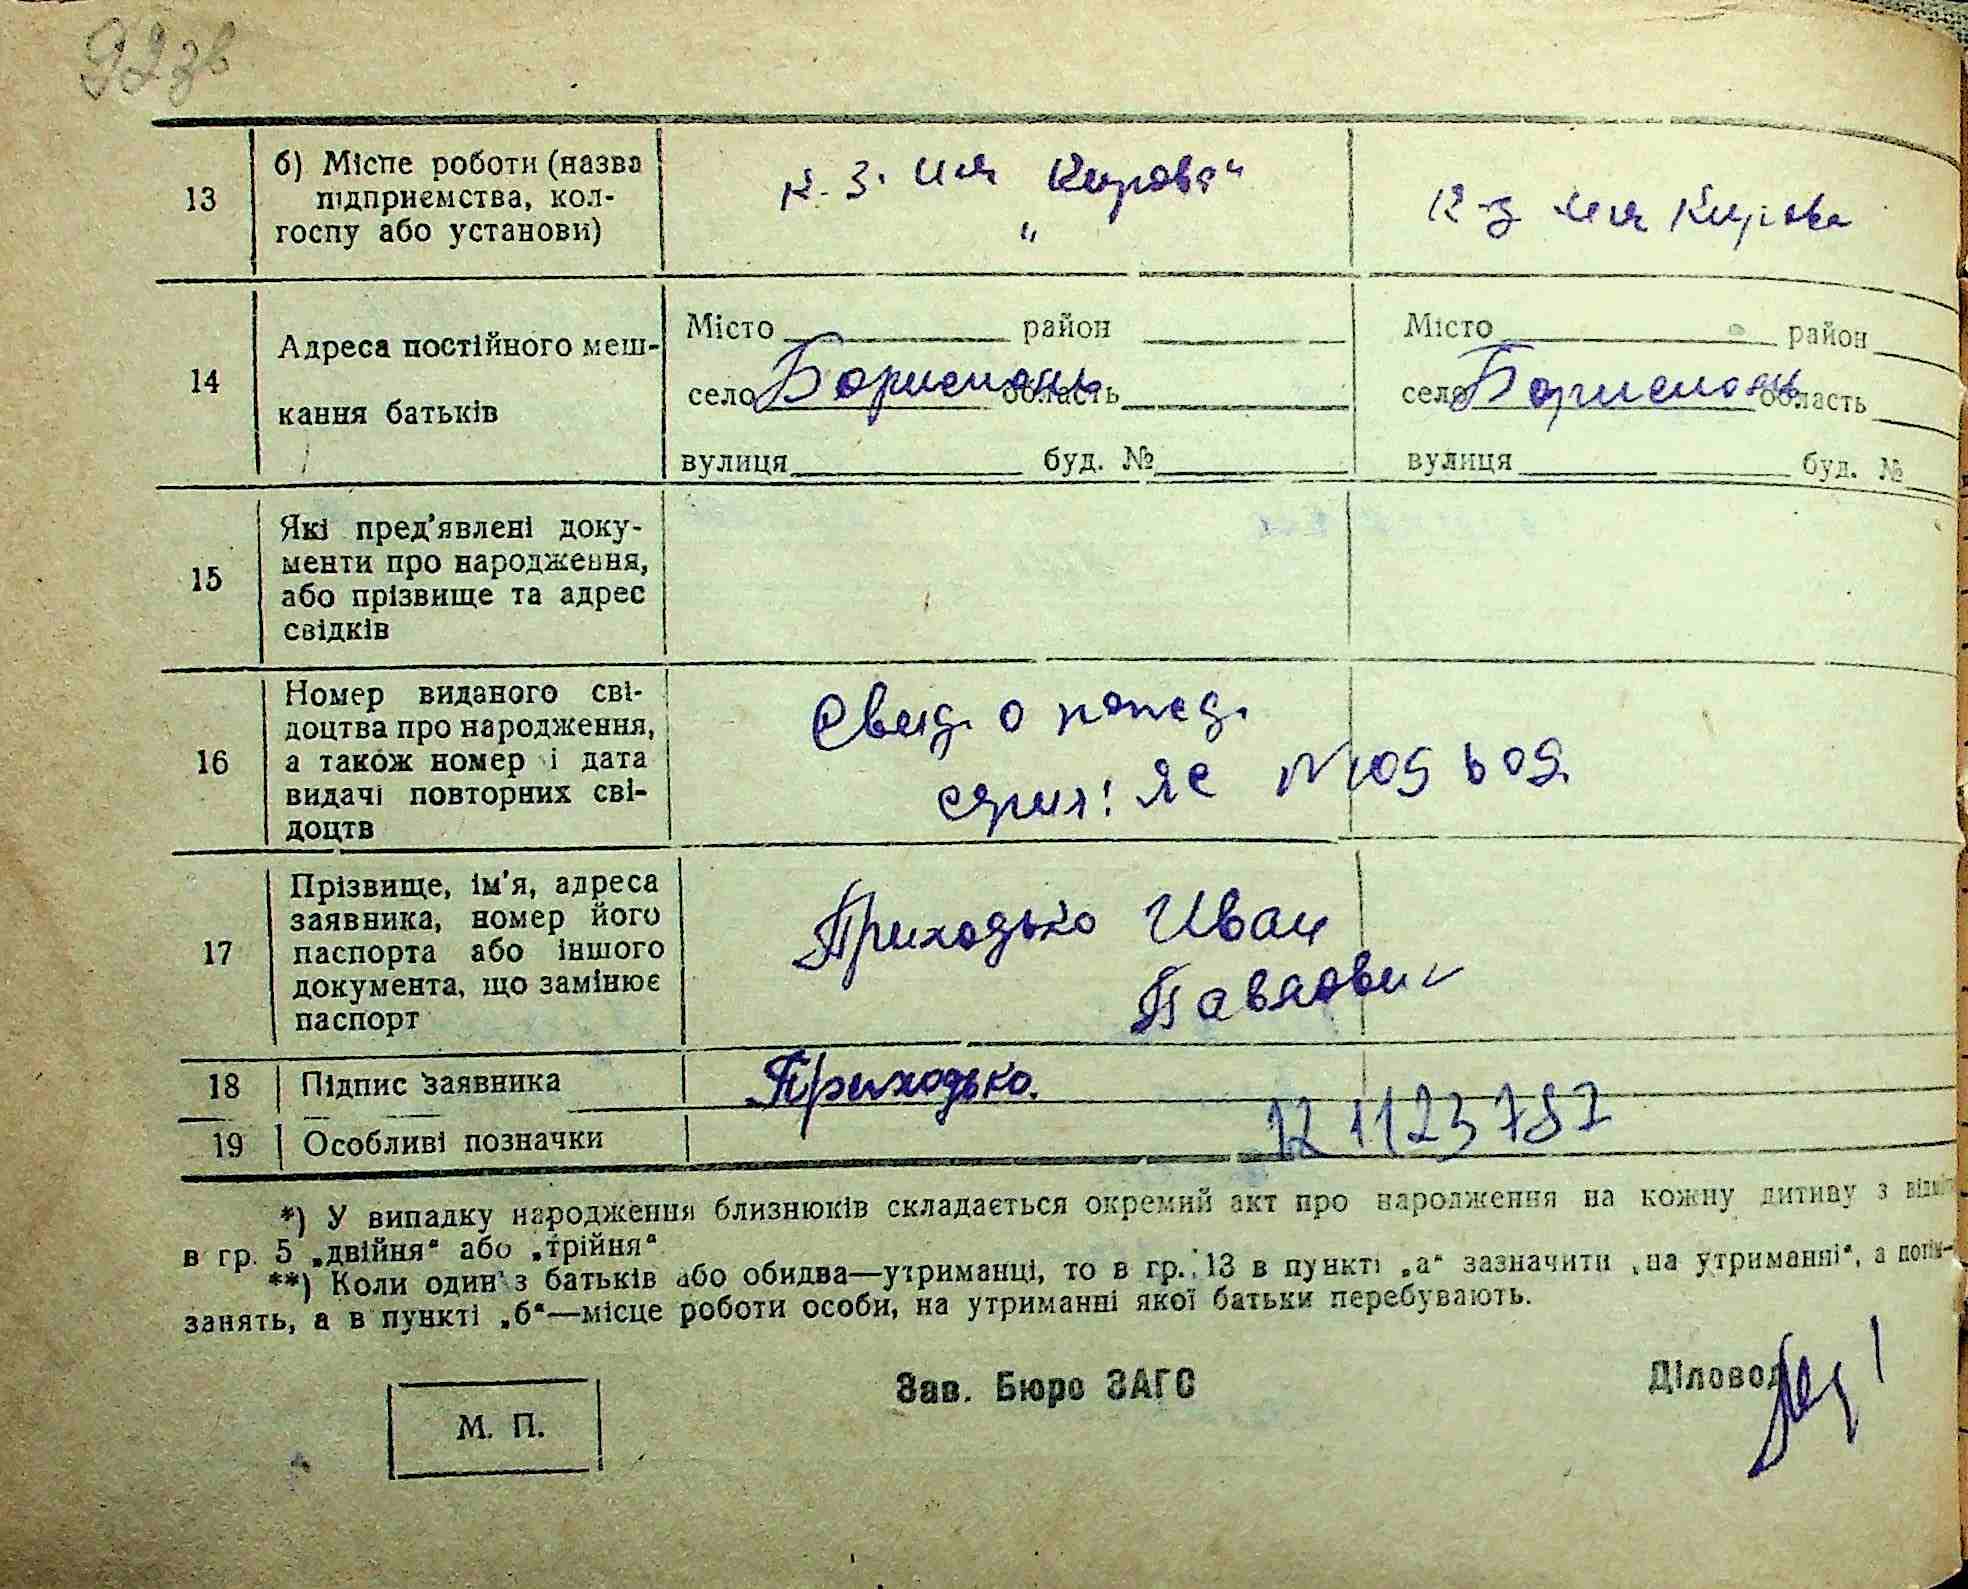 92зв
13 б) Місце роботи (назва підприємства, колгоспу або установи)
к-з. им „Кирова“
к-з им Кирова
14 Адреса постійного меш-
кання батьків
Місто район
село Борисполь область
вулиця буд. №
Місто район
село Борисполь область
вулиця буд. №
15 Які пред’явлені доку-
менти про народження,
або прізвище та адрес
свідків
16 Номер виданого сві-
доцтва про народження,
а також номер і дата
видачі повторних сві-
доцтв
Свид. о
серия: ЯС №
17 Прізвище, ім’я, адреса
заявника, номер його
паспорта або іншого
документа, що замінює
паспорт
Приходько Иван
Павлович
18 Підпис заявника Приходько.
19 Особливі позначки
*) У випадку народження близнюків складається окремий акт про народження на кожну дитину з
в гр. 5 „двійня“ або „трійня“
**) Коли один з батьків або обидва—утриманці, то в гр. 13 в пункті „а“ зазначити „на утриманні“, а
занять, а в пункті „б“—місце роботи особи, на утриманні якої батьки перебувають.
М. П.
Зав. Бюро ЗАГС
Діловод